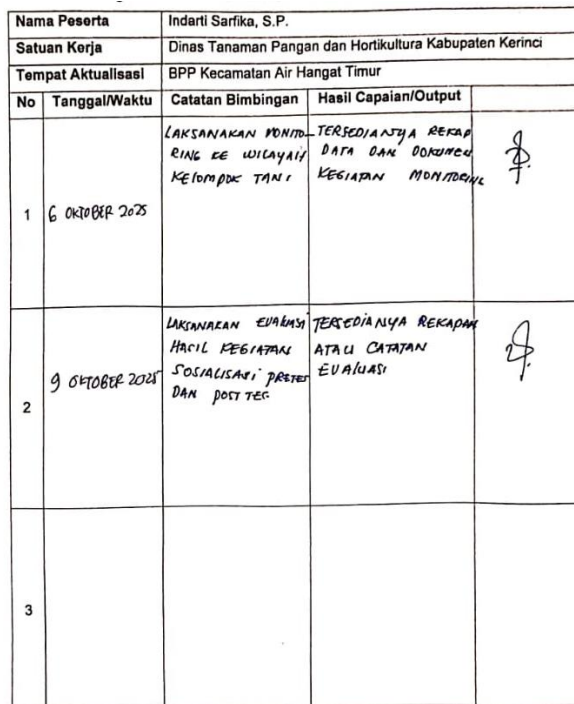 Nama Peserta Indarti Sarfika, S.P.
Satuan Kerja Dinas Tanaman Pangan dan Hortikultura Kabupaten Kerinci
Tempat Aktualisasi BPP Kecamatan Air Hangat Timur
No Tanggal/Waktu Catatan Bimbingan Hasil Capaian/Output
1
6 OKTOBER 2025
LAKSANAKAN MONITO-
RING KE WILAYAH
KELOMPOK TANI
TERSEDIANYA REKAP
DATA DAN DOKUMEN
KEGIATAN MONITORING
2
9 OKTOBER 2025
LAKSANAKAN EVALUASI
HASIL KEGIATAN
SOSIALISASI PRETES
DAN POST TES
TERSEDIANYA REKAPAN
ATAU CATATAN
EVALUASI
3